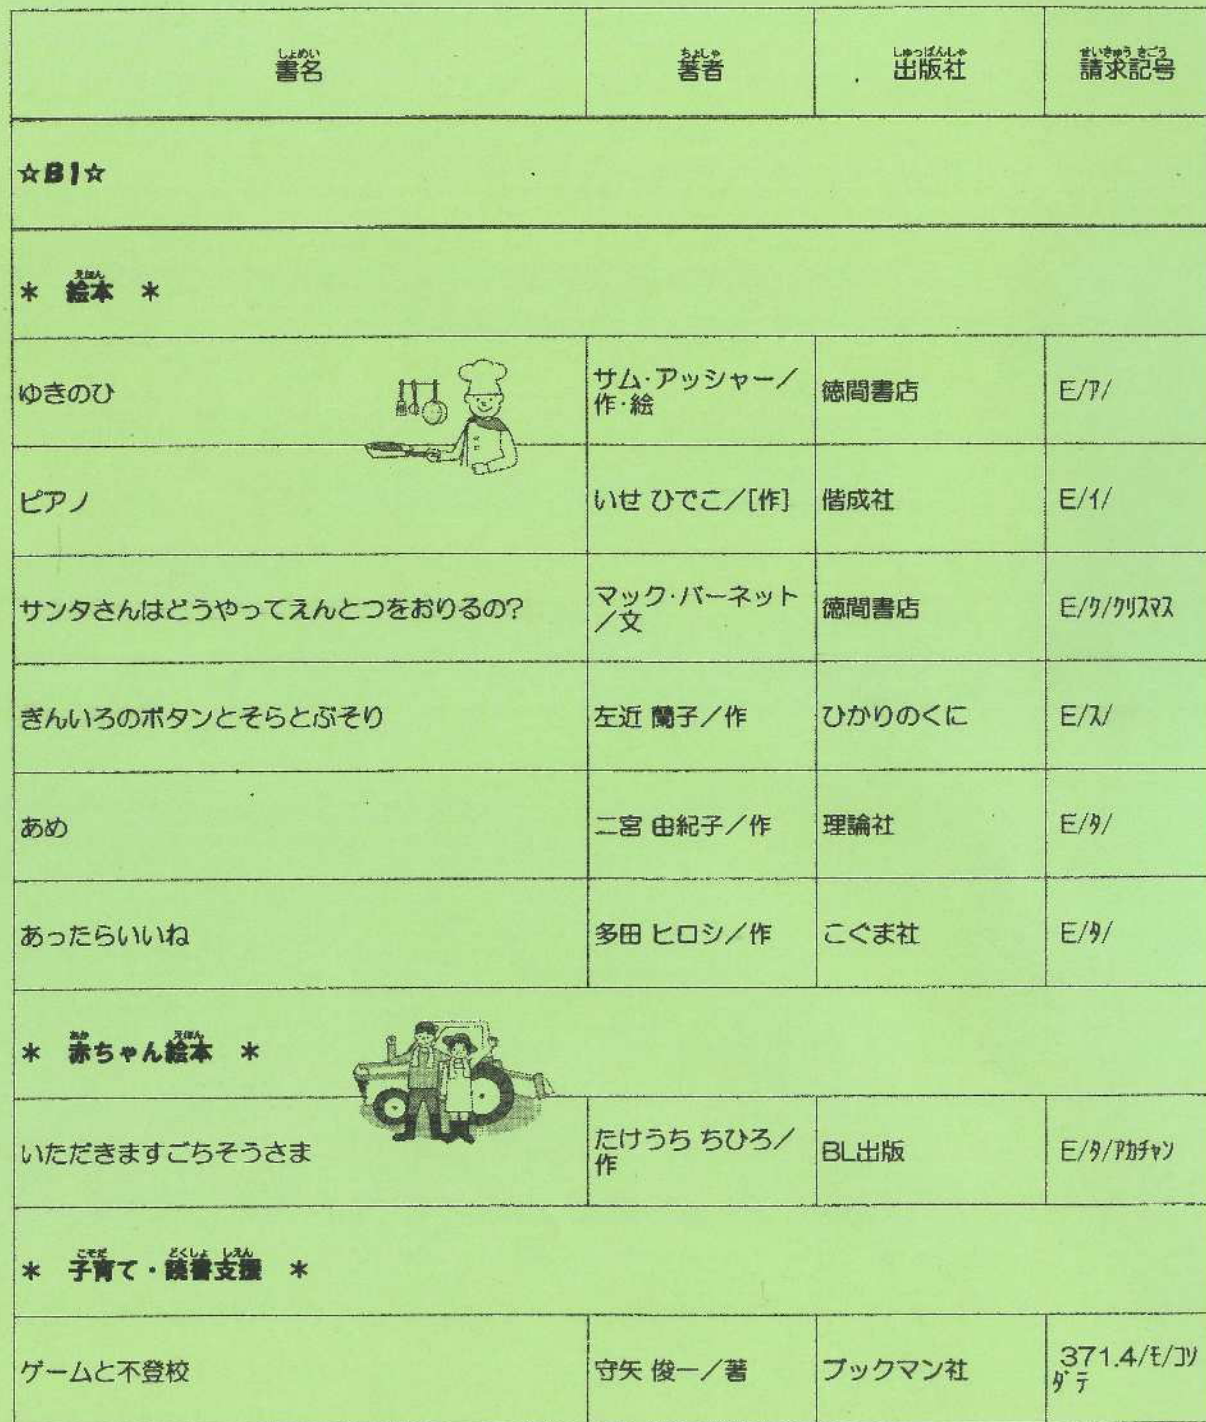 しょめい ちょしゃ しゅっぱんしゃ せいきゅう きごう
書名 著者 出版社 請求記号
☆B1☆
えほん
* 絵本 *
ゆきのひ サム・アッシャー/作・絵 徳間書店 E/ア/
ピアノ いせ ひでこ/[作] 偕成社 E/イ/
サンタさんはどうやってえんとつをおりるの? マック・バーネット/文 徳間書店 E/ク/クリスマス
ぎんいろのボタンとそらとぶそり 左近 蘭子/作 ひかりのくに E/ス/
あめ 二宮 由紀子/作 理論社 E/タ/
あったらいいね 多田 ヒロシ/作 こぐま社 E/タ/
あか えほん
* 赤ちゃん絵本 *
いただきますごちそうさま たけうち ちひろ/作 BL出版 E/タ/アカチャン
こそだ どくしょ しえん
* 子育て・読書支援 *
ゲームと不登校 守矢 俊一/著 ブックマン社 371.4/モ/コソダテ